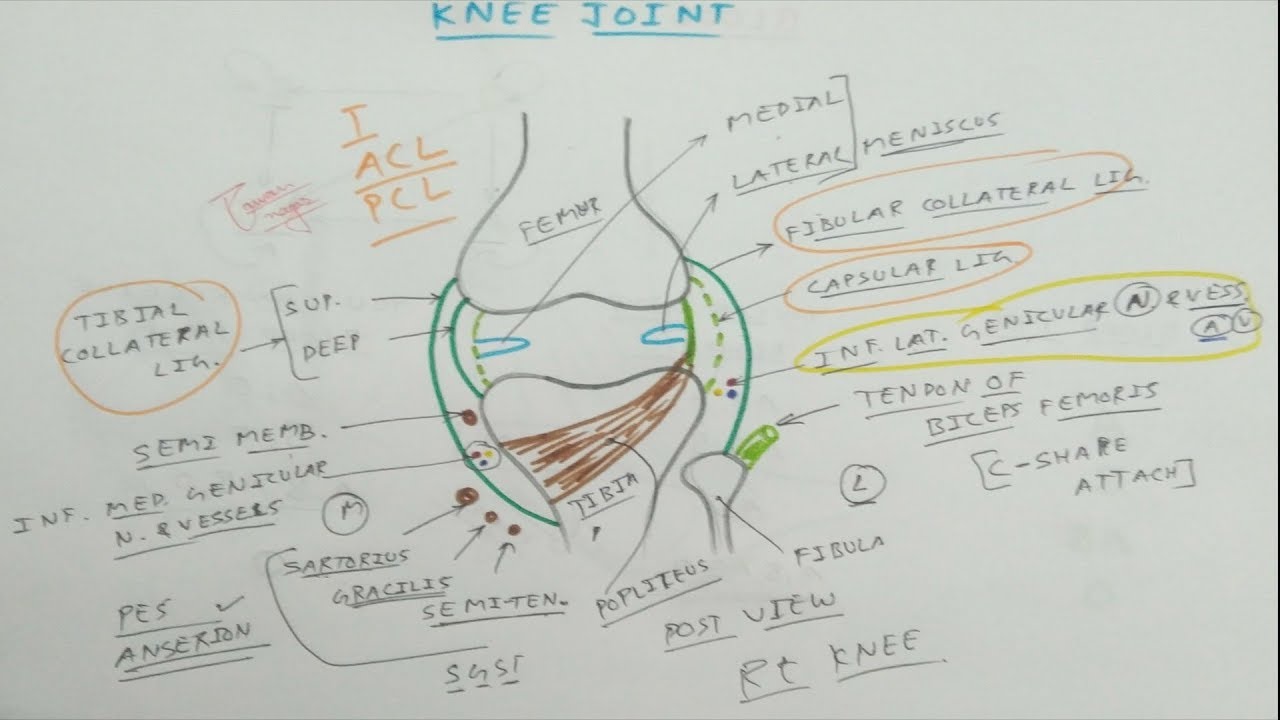 KNEE JOINT
I
ACL
PCL
MEDIAL
LATERAL
MENISCUS
FEMUR
FIBULAR COLLATERAL LIG.
CAPSULAR LIG.
INF. LAT. GENICULAR N & VESS.
A V
TIBIAL
COLLATERAL
LIG.
SUP.
DEEP
TENDON OF
BICEPS FEMORIS
[C-SHARE
ATTACH]
SEMI MEMB.
INF. MED. GENICULAR
N. & VESSERS
M
L
TIBIA
FIBULA
SARTORIUS
GRACILIS
SEMI-TEN.
POPLITEUS
PES ✓
ANSERION
SGST
POST VIEW
Rt KNEE